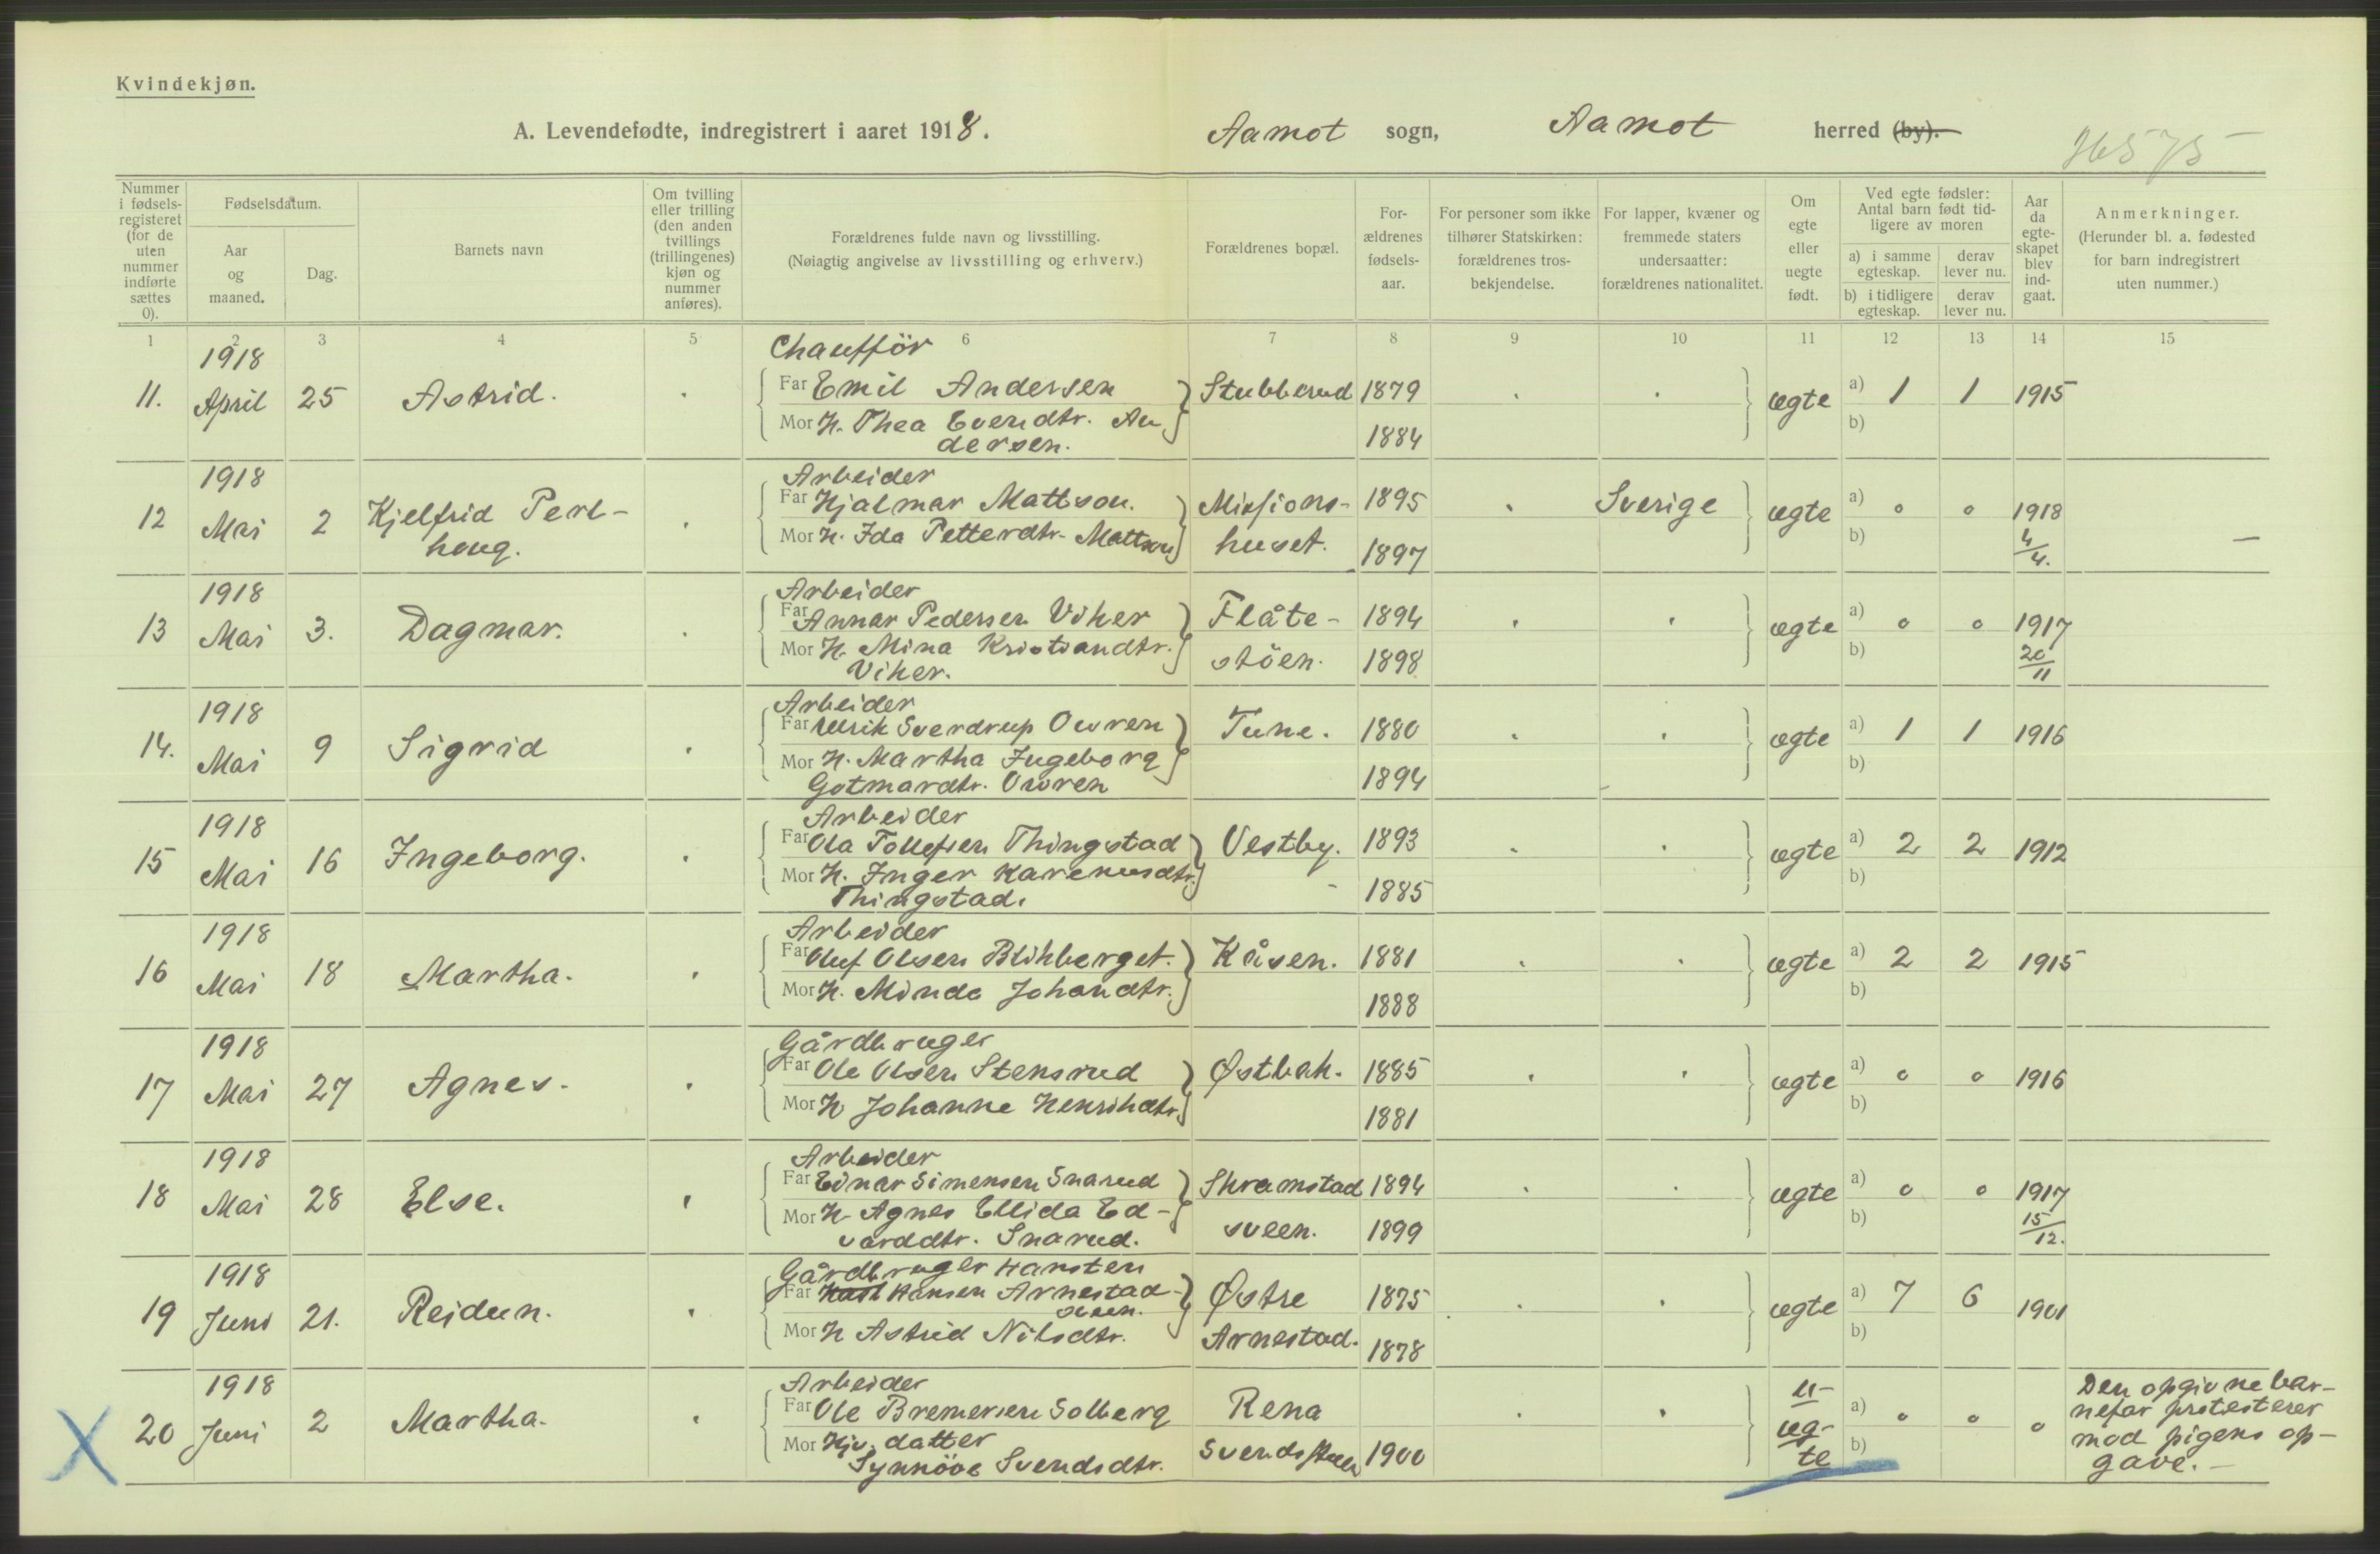 Kvindekjøn.
A. Levendefødte, indregistrert i aaret 1918. Aamot sogn, Aamot herred (by).
36575
Nummer i fødsels-registeret (for de uten nummer indførte sættes 0).
Fødselsdatum.
Aar og maaned.
Dag.
Barnets navn
Om tvilling eller trilling (den anden tvillings (trillingenes) kjøn og nummer anføres).
Forældrenes fulde navn og livsstilling.
(Nøiagtig angivelse av livsstilling og erhverv.)
Forældrenes bopæl.
For-ældrenes fødsels-aar.
For personer som ikke tilhører Statskirken: forældrenes tros-bekjendelse.
For lapper, kvæner og fremmede staters undersaatter: forældrenes nationalitet.
Om egte eller uegte født.
Ved egte fødsler: Antal barn født tid-ligere av moren
a) i samme egteskap. derav lever nu.
b) i tidligere egteskap. derav lever nu.
Aar da egte-skapet blev ind-gaat.
Anmerkninger.
(Herunder bl. a. fødested for barn indregistrert uten nummer.)
1 2 3 4 5 6 7 8 9 10 11 12 13 14 15
1918 Chauffør
11. April 25 Astrid. Far Emil Andersen Stubberud 1879 egte a) 1 1 1915
Mor H. Thea Evendtr. An 1884 b)
dersen.
1918 Arbeider
12 Mai 2 Kjelfrid Perl- Far Hjalmar Mattson. Missions- 1895 Sverige egte a) 0 0 1918
houg. Mor H. Ida Petterdtr. Mattson huset. 1897 b) 4/4.
1918 Arbeider
13 Mai 3. Dagmar. Far Annar Pedersen Viker Flåte- 1894 egte a) 0 0 1917
Mor H. Mina Kristiandtr. støen. 1898 b) 20/11
Viker.
1918 Arbeider
14. Mai 9 Sigrid Far Ulrik Sverdrup Owren Tune. 1880 egte a) 1 1 1916
Mor H. Martha Ingeborg 1894 b)
Gotmardtr. Owren
1918 Arbeider
15 Mai 16 Ingeborg. Far Ola Tollefsen Thingstad Vestby. 1893 egte a) 2 2 1912
Mor H. Inger Karenusdtr. 1885 b)
Thingstad.
1918 Arbeider
16 Mai 18 Martha. Far Oluf Olsen Blikberget. Kåsen. 1881 egte a) 2 2 1915
Mor H. Minda Johandtr. 1888 b)
1918 Gårdbruger
17 Mai 27 Agnes. Far Ole Olsen Stensrud Østbak. 1885 egte a) 0 0 1916
Mor H Johanne Henrikdtr. 1881 b)
1918 Arbeider
18 Mai 28 Else. Far Einar Simensen Snarud Skramstad 1894 egte a) 0 0 1917
Mor H. Agnes Ellida Ed- sveen. 1899 b) 15/12.
varddtr. Snarud.
1918 Gårdbruger Karsten
19 Juni 21. Reidun. Far Hansen Arnestad- Østre 1875 egte a) 7 6 1901
sveen.
Mor H Astrid Nilsdtr. Arnestad. 1878 b)
1918 Arbeider
20 Juni 2 Martha. Far Ole Bremersen Solberg Rena u- a) 0 0 0 Den opgivne bar-
eg- nefar protesterer
Mor Hjv. datter Svendsstuen 1900 te b) mod pigens op-
Synnøve Svendsdtr. gave. -
X